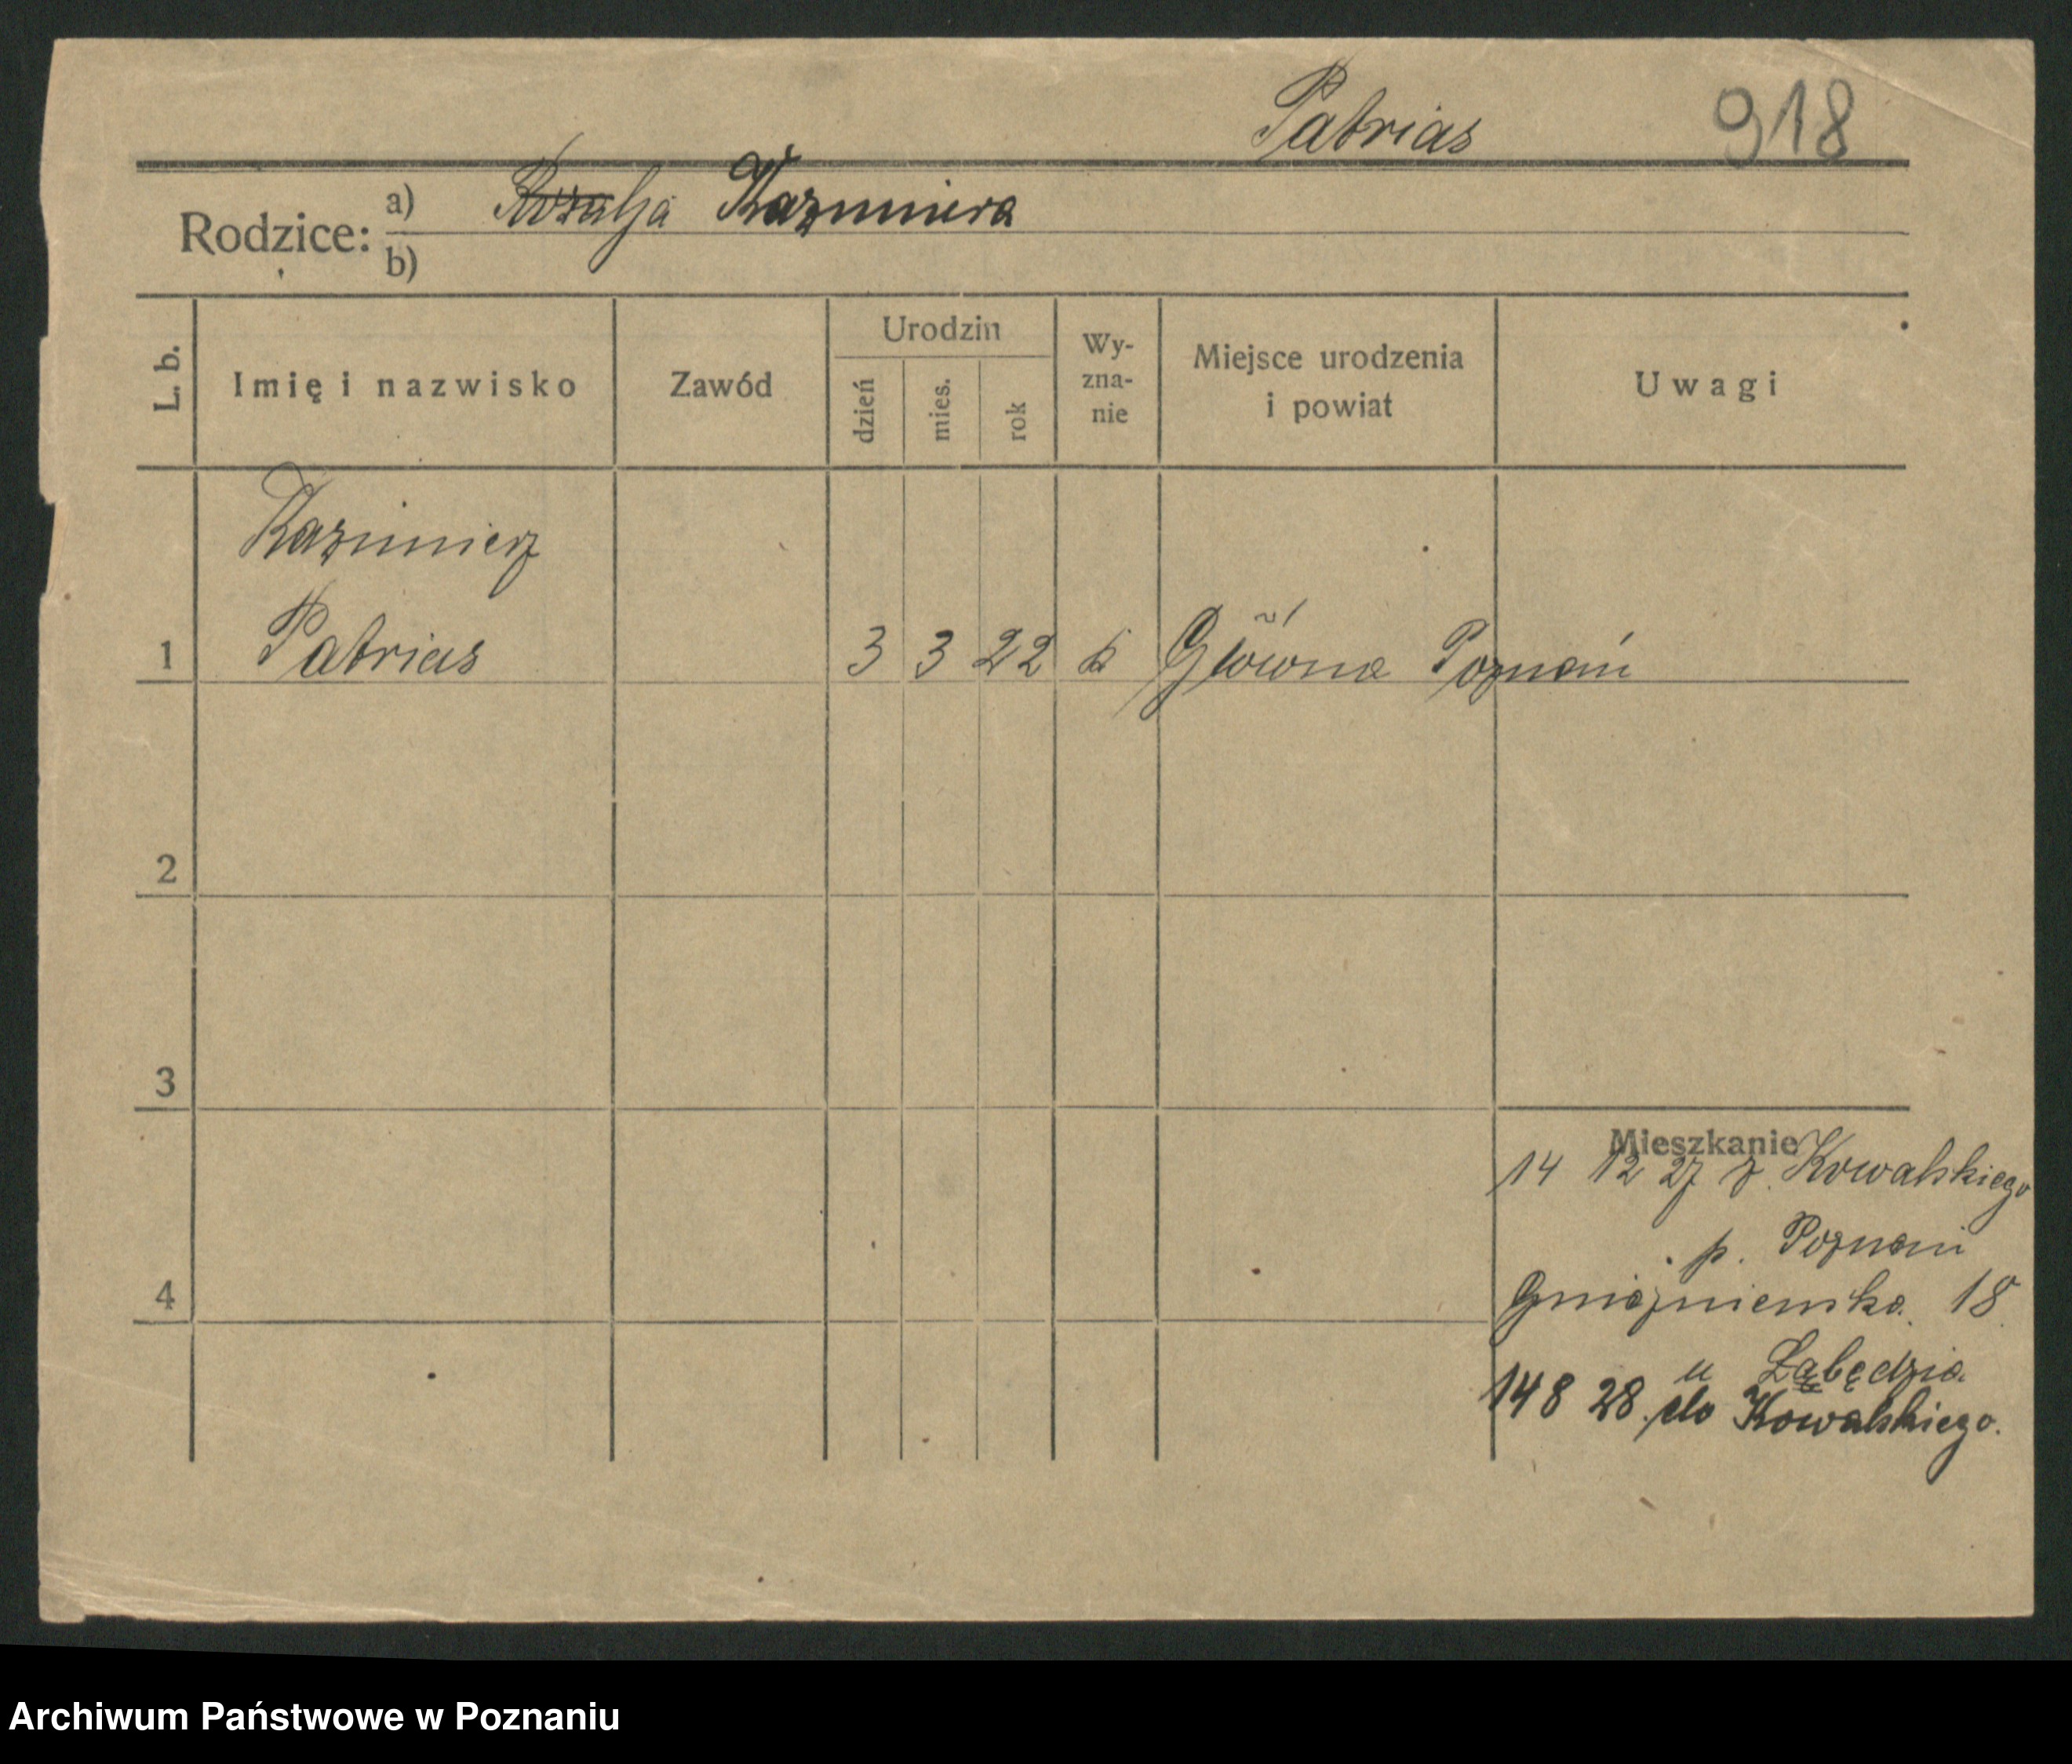 Patrias 918
Rodzice: a) Rozalja Kazimiera
b)
L. b. Imię i nazwisko Zawód Urodzin dzień mies. rok Wy-zna-nie Miejsce urodzenia i powiat Uwagi
Kazimierz
1 Patrias 3 3 22 k Główna Poznań
2
3
Mieszkanie
14 12 27 z. Kowalskiego
p. Poznań
4 Gnieźnieńska 18
u Łabędzia
14 8 28. do Kowalskiego.
Archiwum Państwowe w Poznaniu